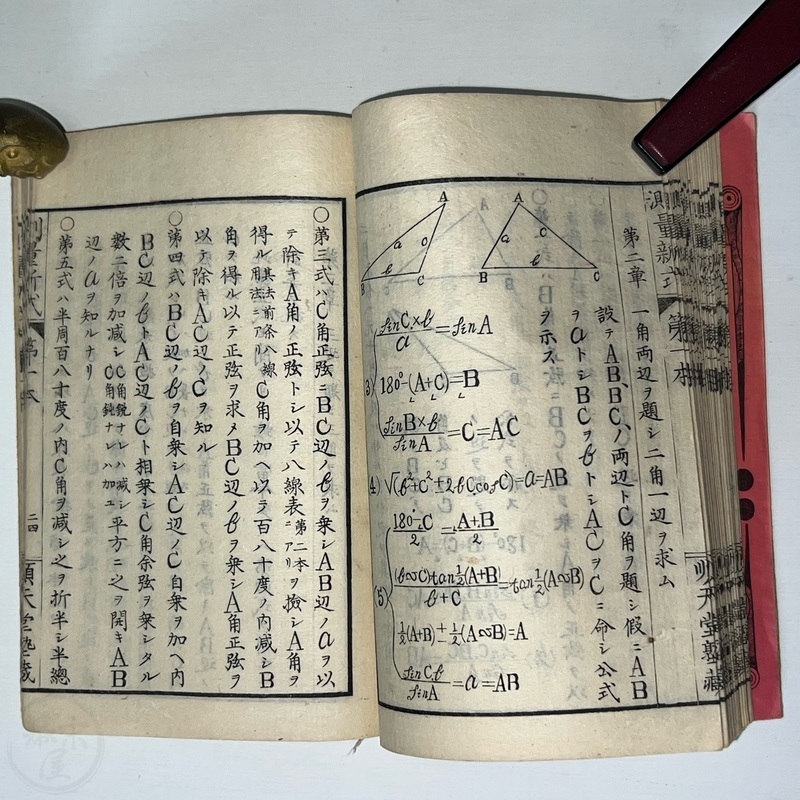 測量新式
第一本
順天堂塾藏
第二章 一角両辺ヲ題シ二角一辺ヲ求ム
設テAB、BC、ノ両辺トC角ヲ題シ假ニAB
ヲaトシBCヲbトシACヲCニ命シ公式
ヲ示ス
A
a
c
b
B
C
A
a
c
b
B
C
3) sinC×b/a=sinA
180°-(A+C)=B
sinB×b/sinA=C=AC
4) √(b²+c²±2bC,cosC)=a=AB
(5) 180°-C/2=A+B/2
(b∽C)tan½(A+B)/b+C=tan½(A∽B)
½(A+B)±½(A∽B)=A
sinC,b/sinA=a=AB
○第三式ハC角正弦ニBC辺ノbヲ乗シAB辺ノaヲ以
テ除キA角ノ正弦トシ以テ八線表第二本ニアリヲ撿シA角ヲ
得ル其去前条八線用法ニアリC角ヲ加ヘ以テ百八十度ノ内減シB
角ヲ得ル以テ正弦ヲ求メBC辺ノbヲ乗シA角正弦ヲ
以テ除キAC辺ノCヲ知ル
○第四式ハBC辺ノbヲ自乗シAC辺ノC自乗ヲ加ヘ内
BC辺ノbトAC辺ノCト相乗シC角余弦ヲ乗シタル
数二倍ヲ加減シC角鋭ナレハ減シC角鈍ナレハ加ユ平方ニ之ヲ開キAB
辺ノaヲ知ルナリ
○第五式ハ半周百八十度ノ内C角ヲ減シ之ヲ折半シ半總
第一本
二四
順天堂塾藏